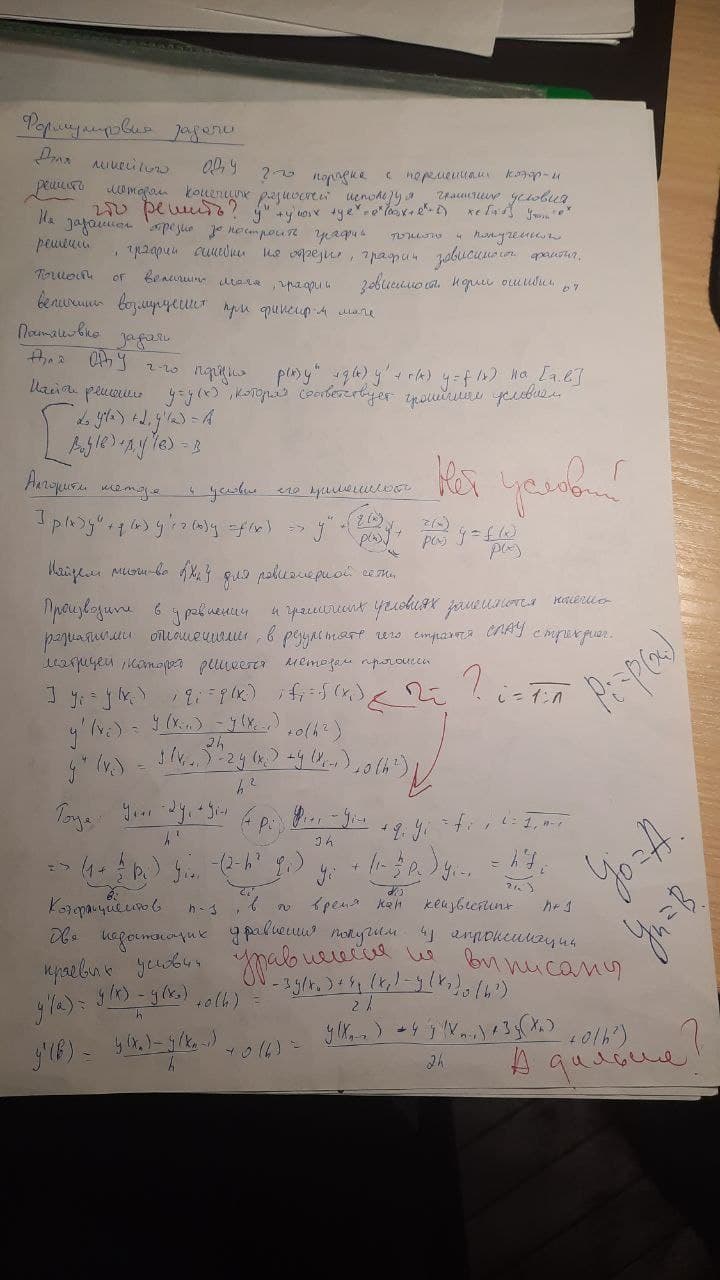 Формулировка задачи
Для линейного ОДУ 2-го порядка с переменными
решить методом конечных разностей используя граничные условия
что решить? y'' + y' cosx + y e^x = e^x(cosx + e^x
На заданном отрезке построить график точного и полученного
решений, график ошибки на отрезке, график зависимости фактич.
точности от величины шага, график зависимости нормы ошибки от
величины возмущения при фиксир-м шаге
Постановка задачи
Для ОДУ 2-го порядка p(x)y'' + q(x)y' + r(x)y = f(x) на [a,b]
Найти решение y=y(x), которая соответствует граничным условиям
α₀y(a) + α₁y'(a) = A
β₀y(b) + β₁y'(b) = B
Алгоритм метода и условия его применимости Нет условий!
] p(x)y'' + q(x)y' + r(x)y = f(x) => y'' + q(x)/p(x) y' + r(x)/p(x) y = f(x)/p(x)
Найдем для равномерной сетки
Производные в уравнении и граничных условиях заменяются конечно
разностными отношениями, в результате чего строится СЛАУ с трехдиаг.
матрицей, которая решается методом прогонки
] yᵢ = y(xᵢ), qᵢ = q(xᵢ), fᵢ = f(xᵢ) rᵢ? i = 1:n pᵢ = p(xᵢ)
y'(xᵢ) = (y(xᵢ₊₁) - y(xᵢ₋₁))/2h + O(h²)
y''(xᵢ) = (y(xᵢ₊₁) - 2y(xᵢ) + y(xᵢ₋₁))/h² + O(h²)
Тогда: (yᵢ₊₁ - 2yᵢ + yᵢ₋₁)/h² + pᵢ (yᵢ₊₁ - yᵢ₋₁)/2h + qᵢyᵢ = fᵢ, i = 1,n-1
=> (1 + h/2 pᵢ) yᵢ₊₁ - (2 - h²qᵢ) yᵢ + (1 - h/2 pᵢ) yᵢ₋₁ = h²fᵢ
y₀ = A.
yₙ = B.
Коэффициентов n-1, в то время как неизвестных n+1
Два недостающих уравнения получим из апроксимации
краевых условий уравнения не выписаны
y'(a) = (y(x) - y(x₀))/h + O(h) = (-3y(x₀) + 4y(x₁) - y(x₂))/2h + O(h²)
y'(b) = (y(xₙ) - y(xₙ₋₁))/h + O(h) = (y(xₙ₋₂) - 4y(xₙ₋₁) + 3y(xₙ))/2h + O(h²)
А дальше?